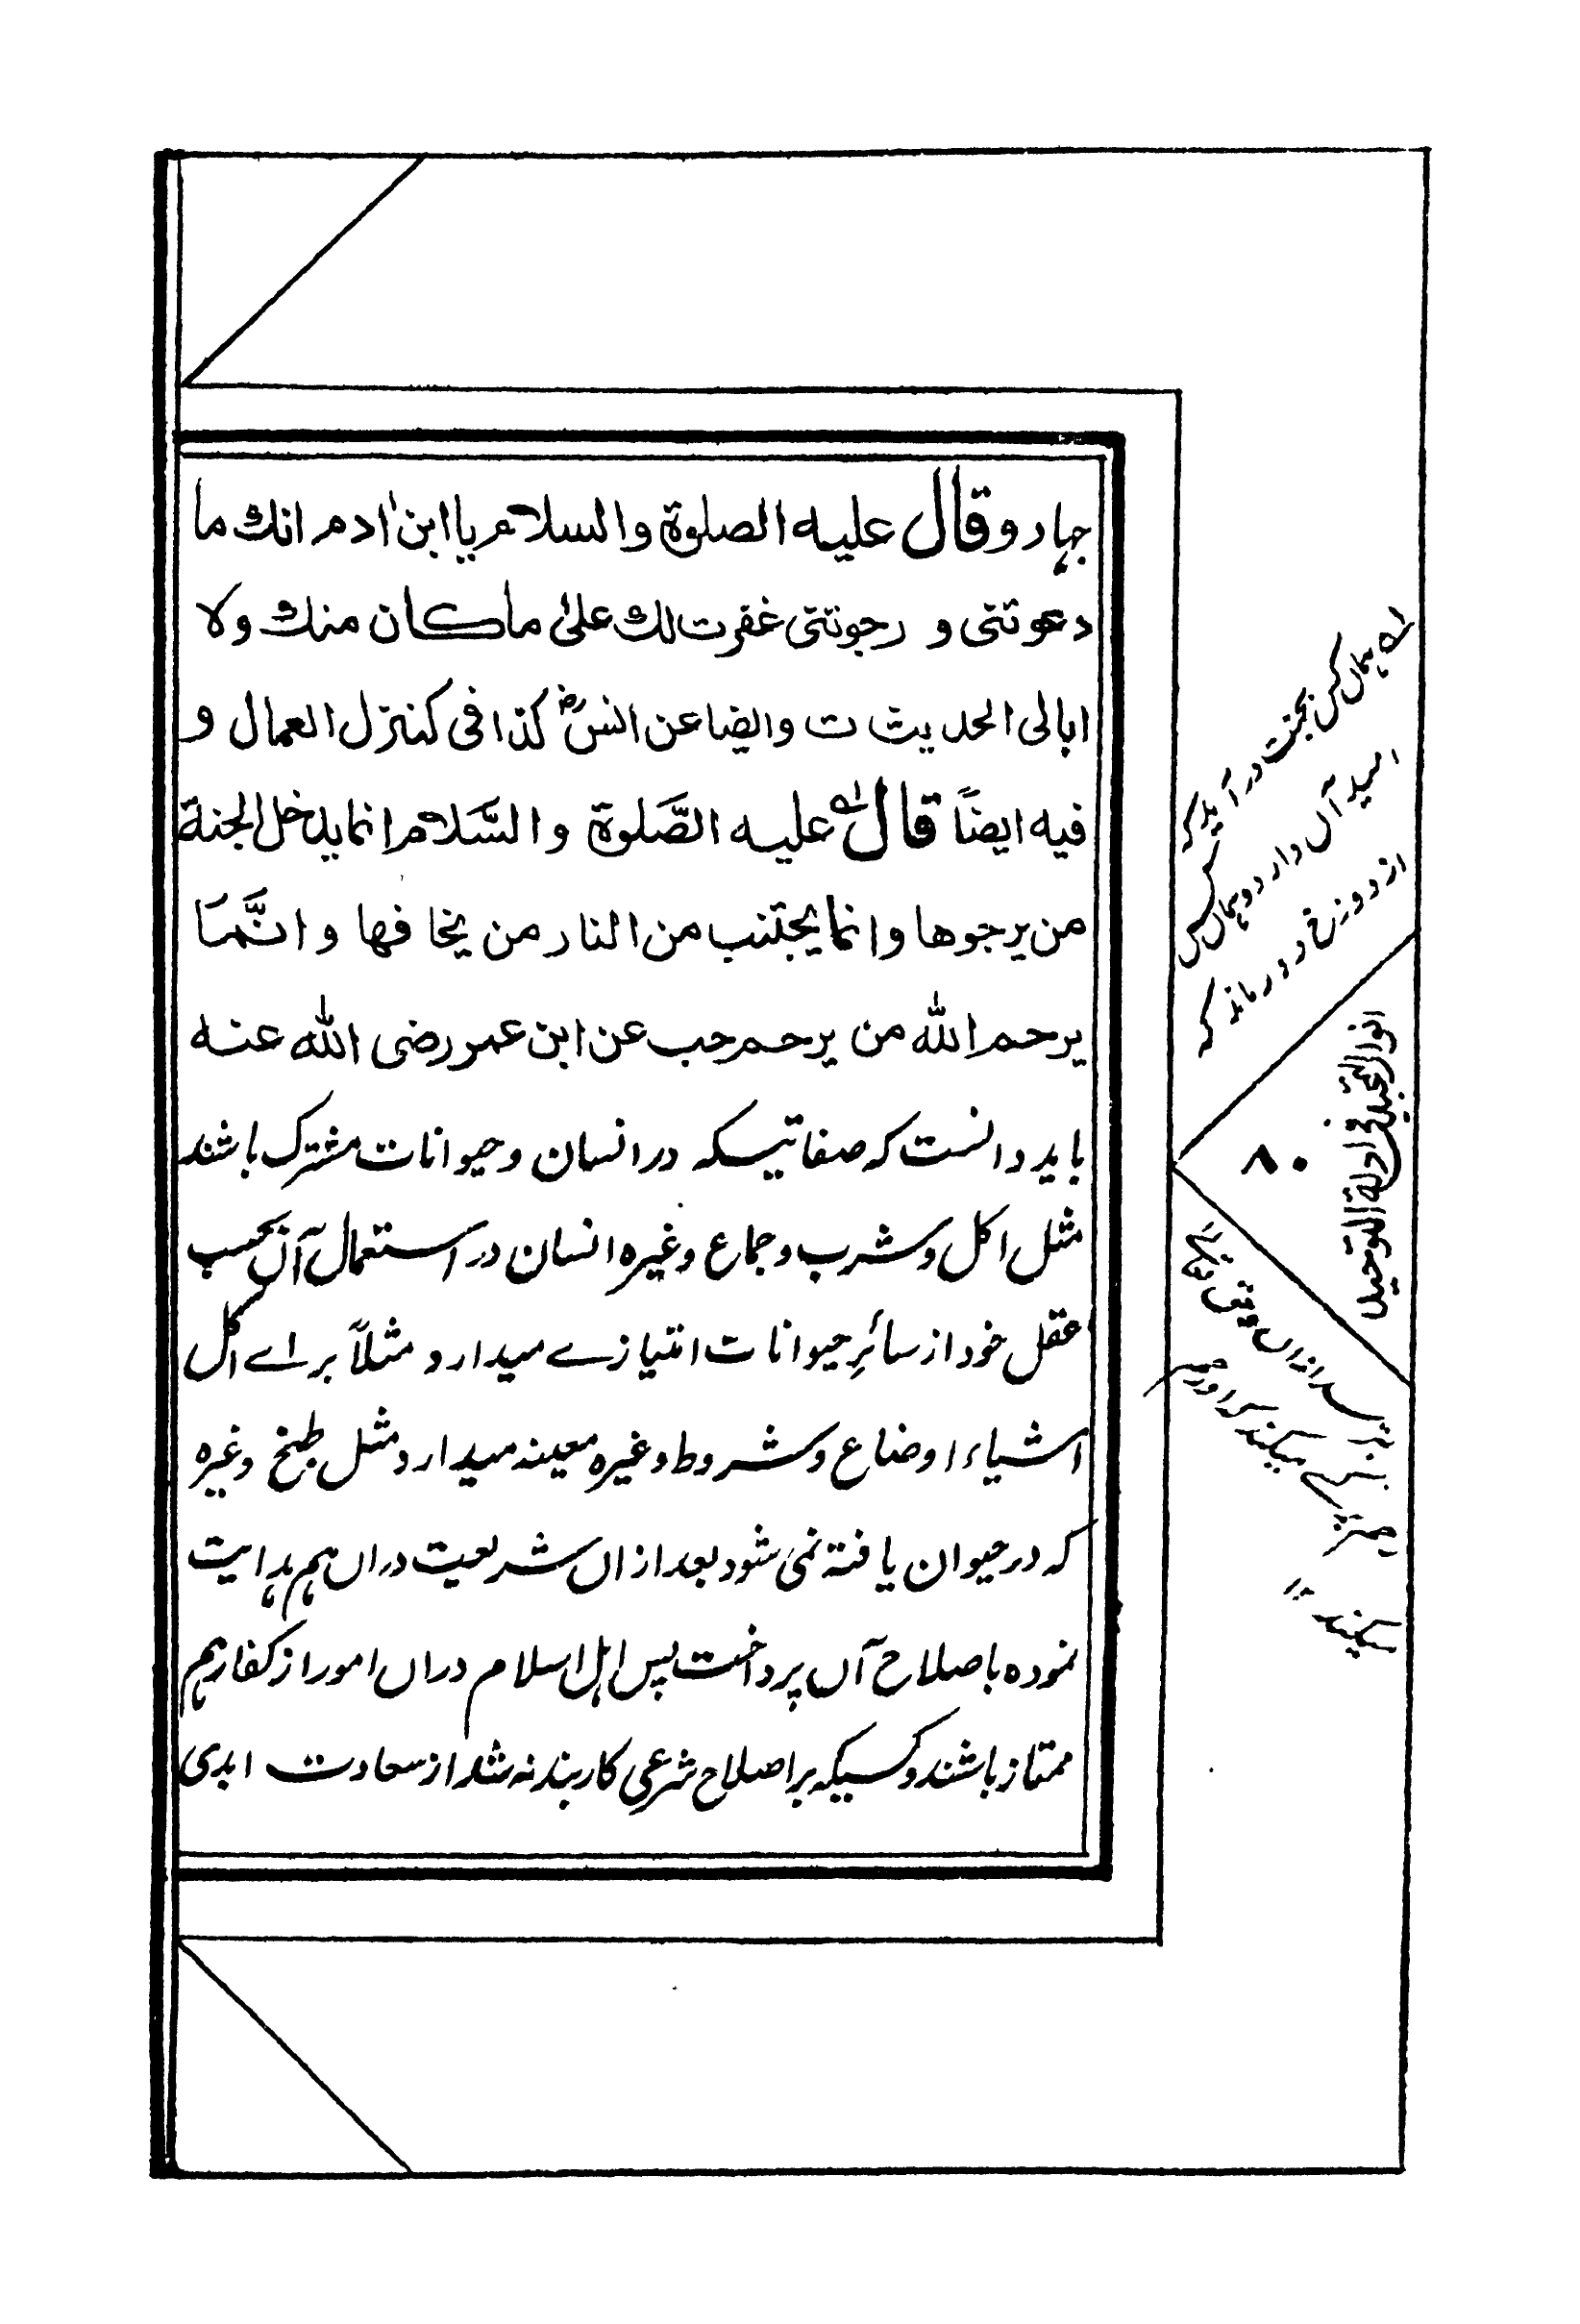 جهاد و قال عليه الصلوة والسلام يا ابن ادم انك ما
دعوتنى و رجوتنى غفرت لك على ما كان منك ولا
ابالى الحديث ت والضا عن انسؓ كذا فى كنز العمال و
فيه ايضًا قال عليه الصَّلوة والسَّلام انما يدخل الجنة
من يرجوها وانما يجتنب من النار من يخافها و انَّما
يرحم الله من يرحم حب عن ابن عمر رضى الله عنه
باید دانست که صفاتیسکه در انسان و حیوانات مشترک باشند
مثل اکل و شرب و جماع وغیره انسان در استعمال آن بحسب
عقل خود از سائرِ حیوانات امتیازے میدارد مثلاً براے اکل
اشیاء اوضاع و شروط وغیره معینه میدارد مثل طبخ وغیره
که در حیوان یافته نمی شود بعد ازاں شریعت دراں هم هدایت
نموده باصلاح آں پرداخت پس اہل اسلام دراں امور از کفار ہم
ممتاز باشند و کسیکه بر اصلاح شرعی کاربند نه شد از سعادت ابدی
لہ ہماں کس بجنت در آید کہ
امید آں دارد و ہماں کس
از دوزخ دور ماند کہ
انوار التجیل فی ادلة التوحید
۸۰